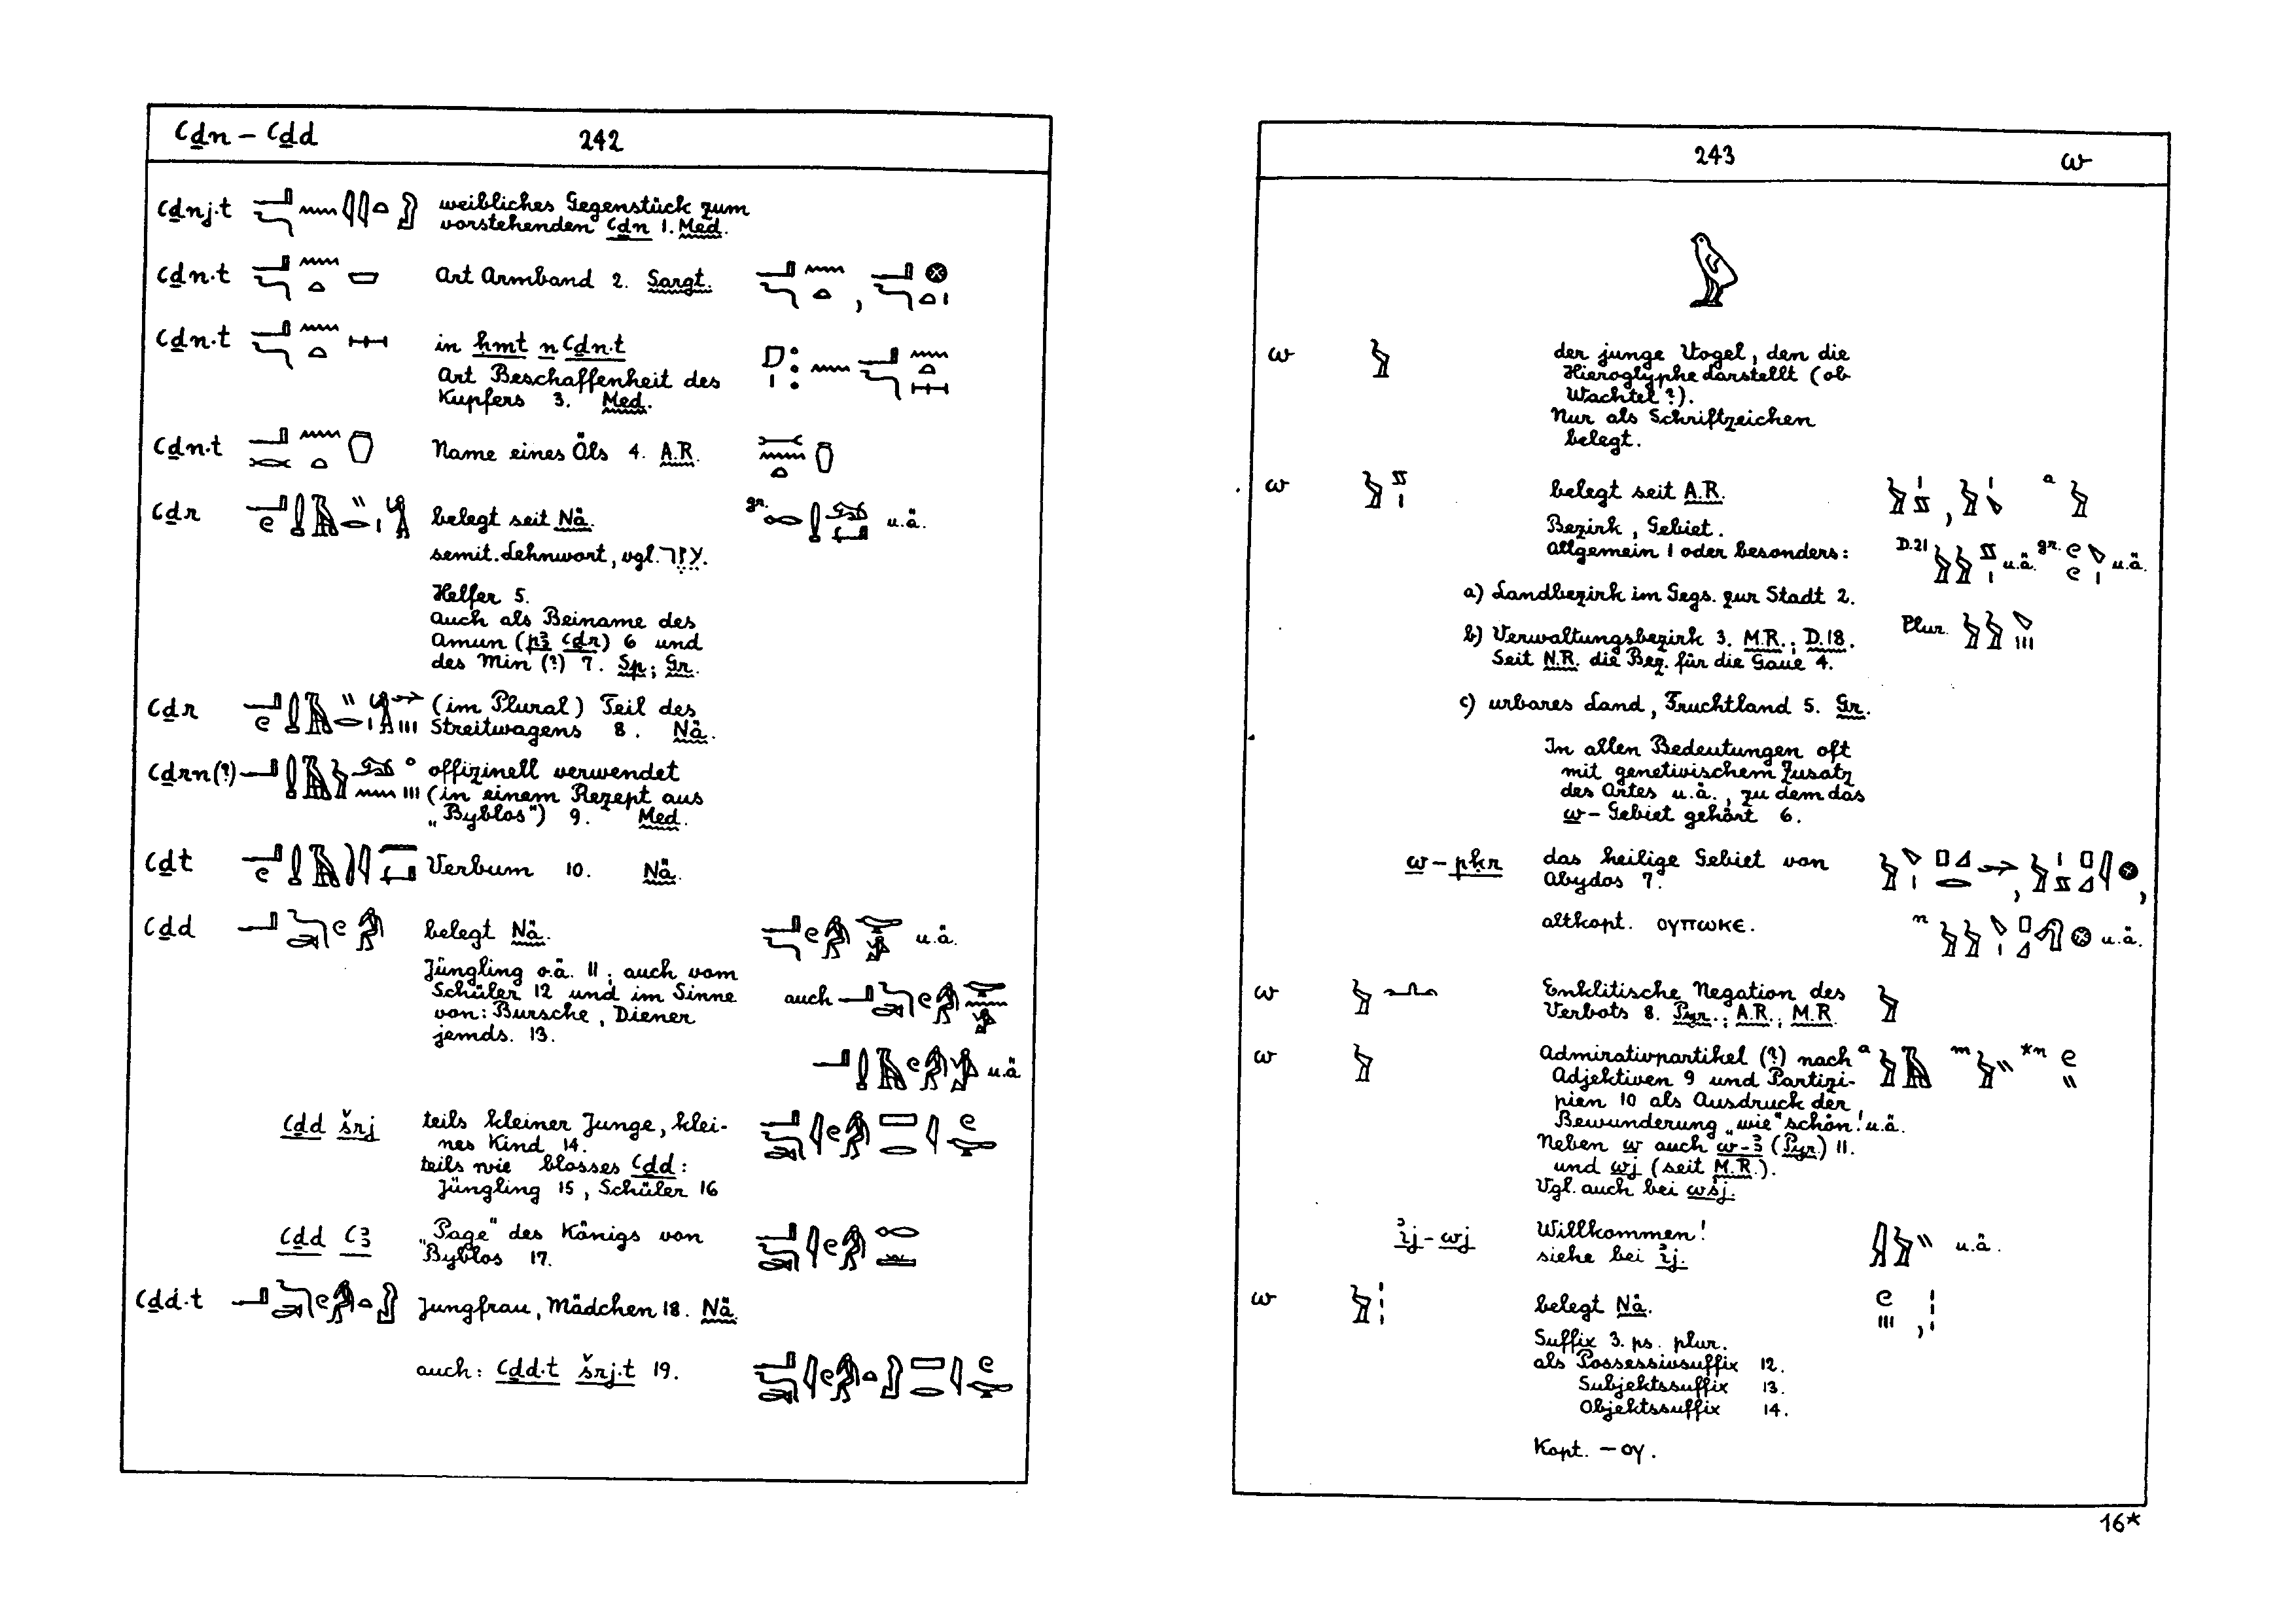 ꜥḏn – ꜥḏd 242
ꜥḏnj·t weibliches Gegenstück zum
vorstehenden ꜥḏn 1. Med.
ꜥḏn·t Art Armband 2. Sargt.
ꜥḏn·t in ḥmt n ꜥḏn·t
Art Beschaffenheit des
Kupfers 3. Med.
ꜥḏn·t Name eines Öls 4. A.R.
ꜥḏr belegt seit Nä. gr. u.ä.
semit. Lehnwort, vgl. עזר.
Helfer 5.
Auch als Beiname des
Amun (pꜣ ꜥḏr) 6 und
des Min (?) 7. Sp; Gr.
ꜥḏr (im Plural) Teil des
Streitwagens 8. Nä.
ꜥḏrn(?) offizinell verwendet
(in einem Rezept aus
„Byblos") 9. Med.
ꜥḏt Verbum 10. Nä.
ꜥḏd belegt Nä. u.ä.
Jüngling o.ä. 11; auch vom
Schüler 12 und im Sinne auch
von: Bursche, Diener
jemds. 13.
u.ä
ꜥḏd šrj teils kleiner Junge, klei-
nes Kind 14.
teils wie blosses ꜥḏd:
Jüngling 15, Schüler 16
ꜥḏd ꜥꜣ „Page" des Königs von
Byblos 17.
ꜥḏd·t Jungfrau, Mädchen 18. Nä.
auch: ꜥḏd·t šrj·t 19.
243 w
w der junge Vogel, den die
Hieroglyphe darstellt (ob
Wachtel?).
Nur als Schriftzeichen
belegt.
w belegt seit A.R. a
Bezirk, Gebiet.
Allgemein 1 oder besonders: D.21 u.ä. gr. u.ä.
a) Landbezirk im Gegs. zur Stadt 2.
b) Verwaltungsbezirk 3. M.R.; D.18. Plur.
Seit N.R. die Bez. für die Gaue 4.
c) urbares Land, Fruchtland 5. Gr.
In allen Bedeutungen oft
mit genetivischem Zusatz
des Ortes u.ä., zu dem das
w – Gebiet gehört 6.
w – pḳr das heilige Gebiet von
Abydos 7.
altkopt. ⲟⲩⲡⲱⲕⲉ. n u.ä.
w Enklitische Negation des
Verbots 8. Pyr.; A.R.; M.R.
w Admirativpartikel (?) nach a m *n
Adjektiven 9 und Partizi-
pien 10 als Ausdruck der
Bewunderung „wie" schön! u.ä.
Neben w auch w-ꜣ (Pyr.) 11.
und wj (seit M.R.).
Vgl. auch bei wśj.
ꞽj – wj Willkommen! u.ä.
siehe bei ꞽj.
w belegt Nä.
Suffix 3. ps. plur.
als Possessivsuffix 12.
Subjektssuffix 13.
Objektssuffix 14.
Kopt. – ⲟⲩ.
16*